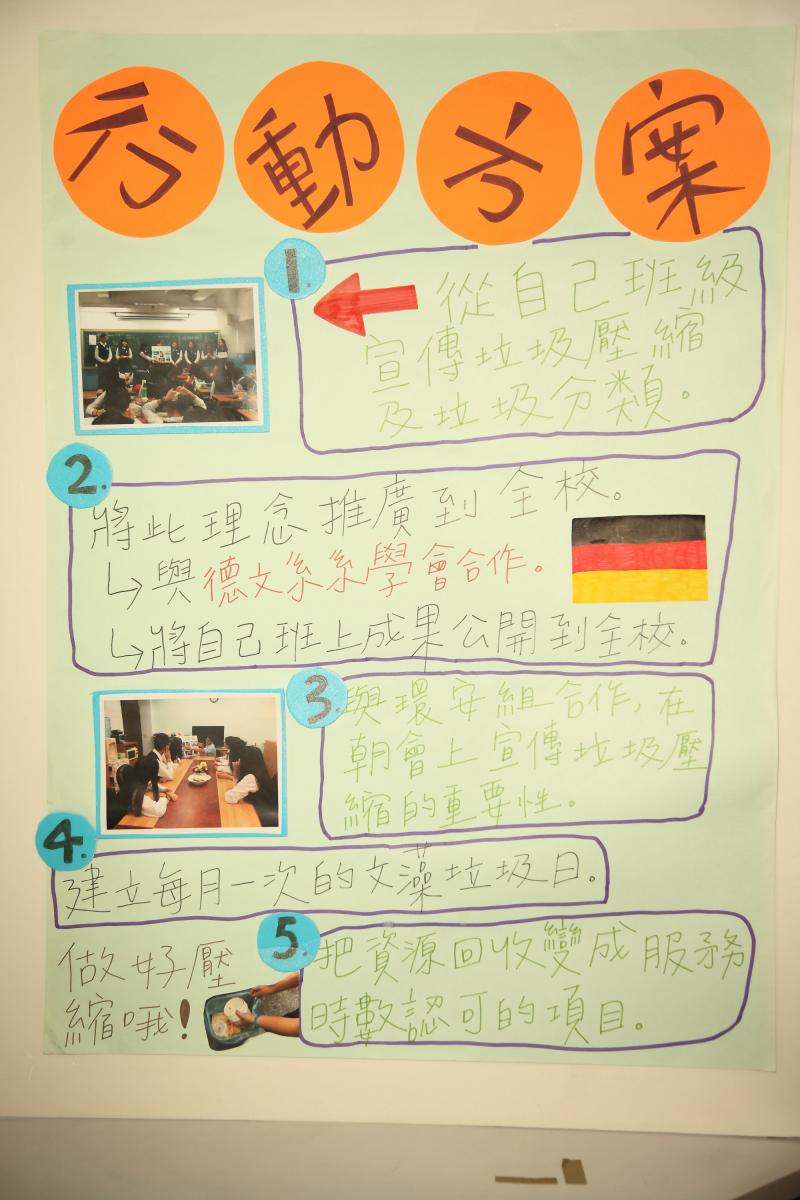 行動方案
1.
從自己班級
宣傳垃圾壓縮
及垃圾分類。
2.
將此理念推廣到全校。
↳與德文系系學會合作。
↳將自己班上成果公開到全校。
3.
與環安組合作,在
朝會上宣傳垃圾壓
縮的重要性。
4.
建立每月一次的文藻垃圾日。
5.
把資源回收變成服務
時數認可的項目。
做好壓
縮哦!